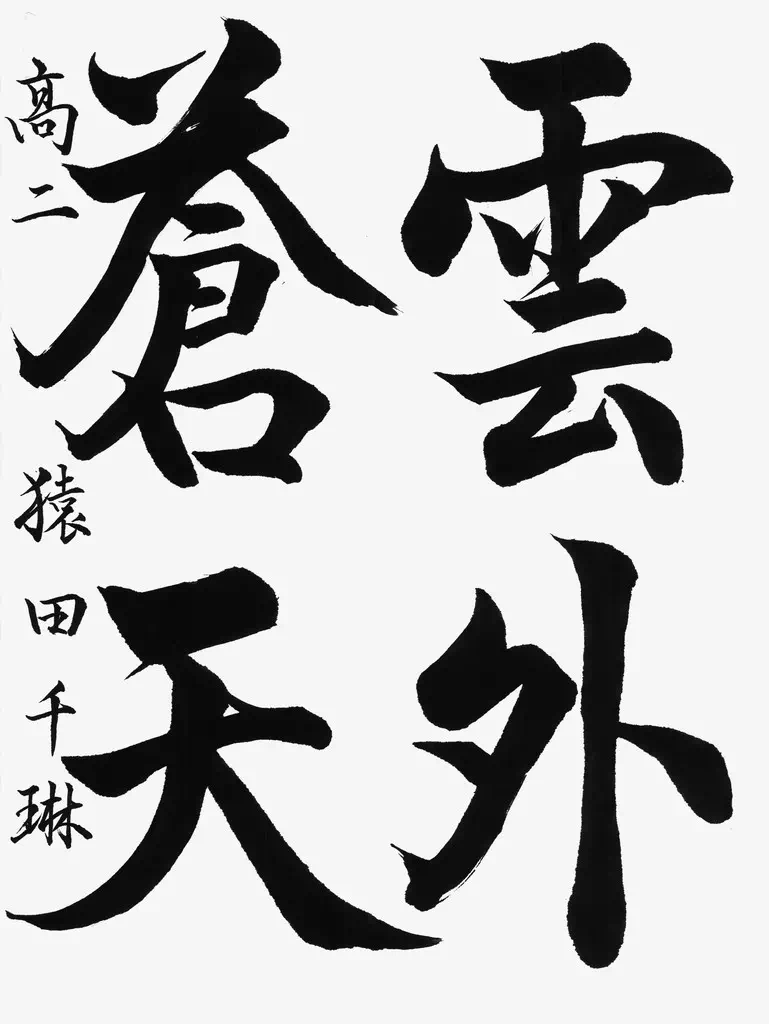 雲外
蒼天
高二 猿田千琳